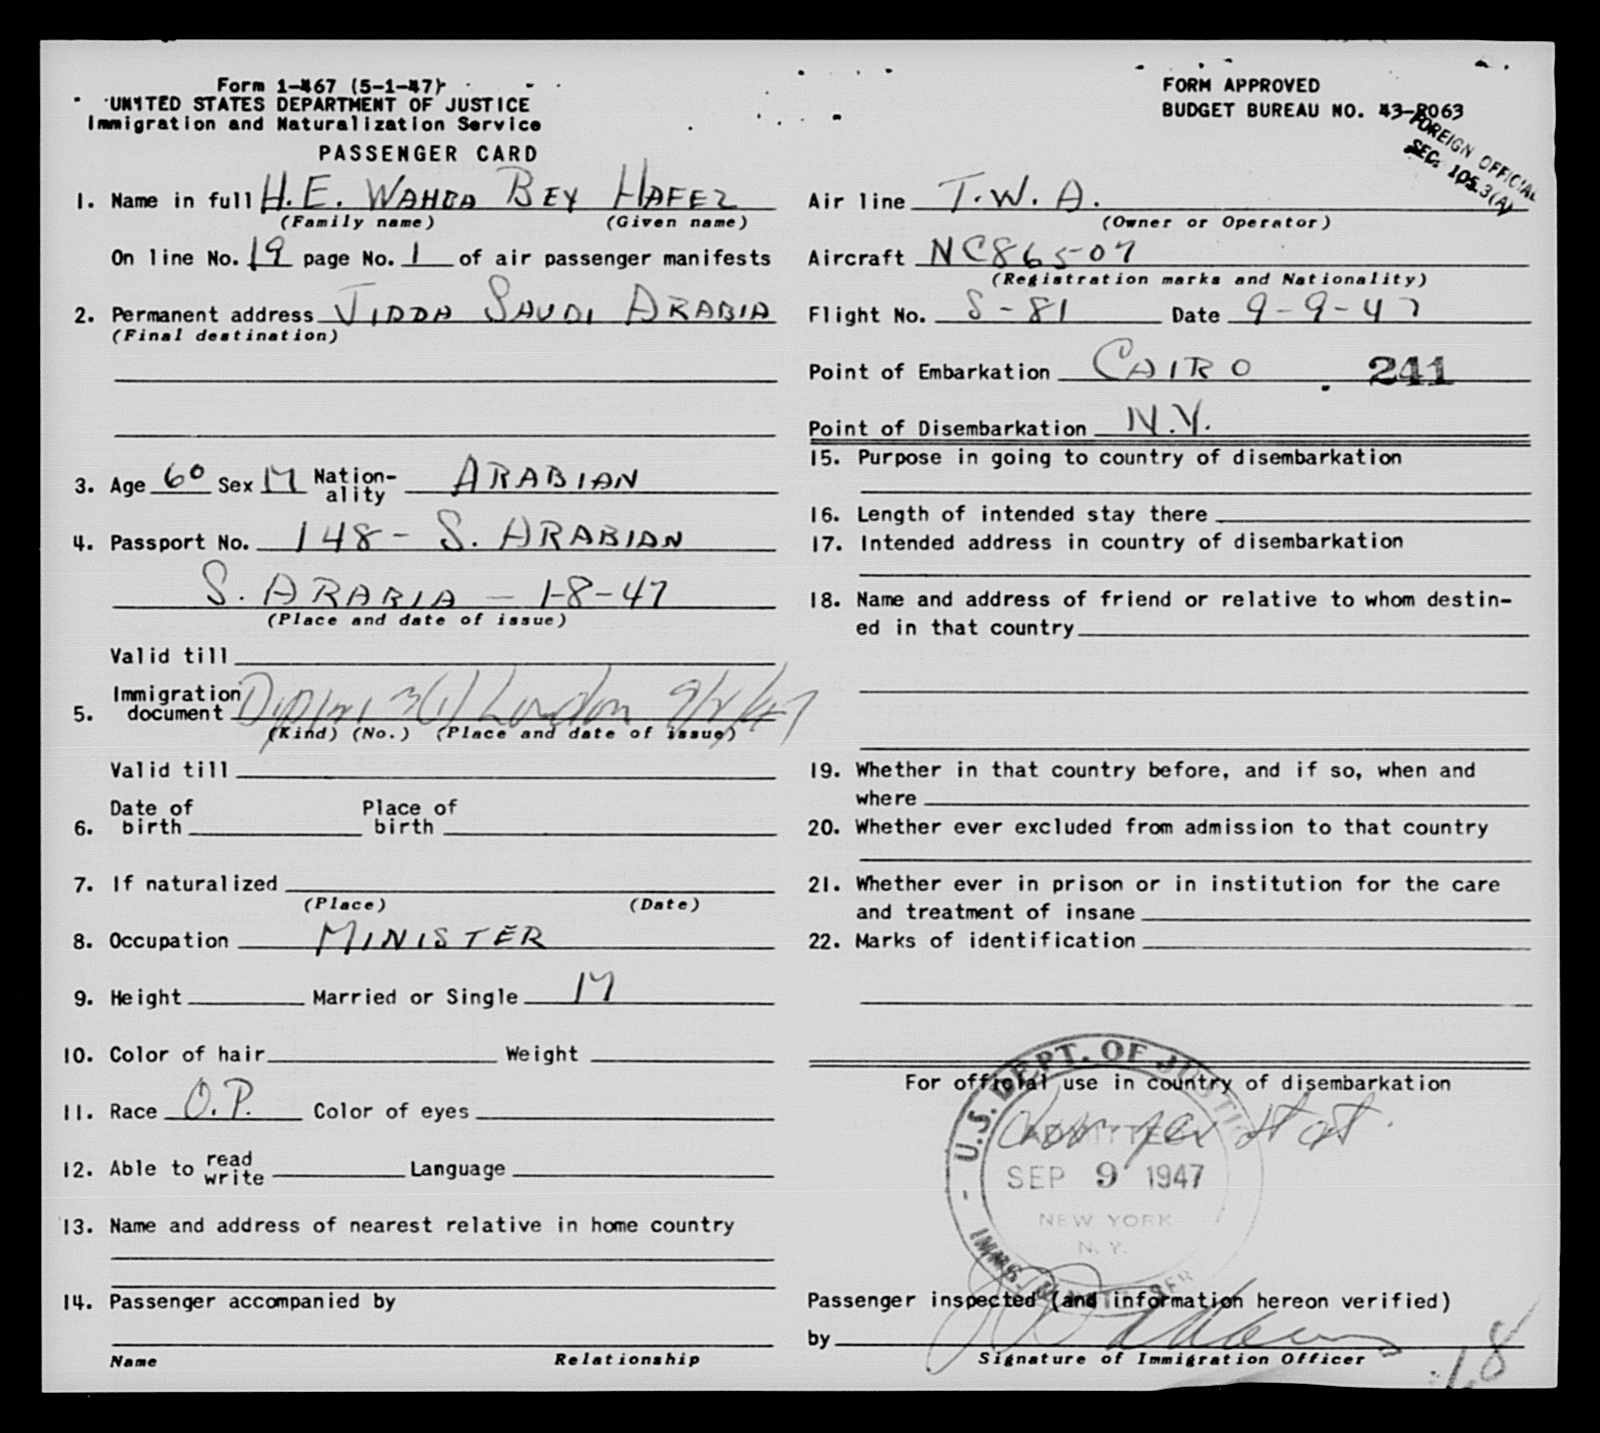 Form 1-467 (5-1-47)
UNITED STATES DEPARTMENT OF JUSTICE
Immigration and Naturalization Service
PASSENGER CARD
FORM APPROVED
BUDGET BUREAU NO. 43-R063
FOREIGN OFFICIAL
SEC. 105.3(A)
1. Name in full H.E. WAHBA BEY HAFEZ
(Family name) (Given name)
On line No. 19 page No. 1 of air passenger manifests
2. Permanent address JIDDA SAUDI ARABIA
(Final destination)
3. Age 60 Sex M Nation-ality ARABIAN
4. Passport No. 148 - S. ARABIAN
S. ARABIA - 1-8-47
(Place and date of issue)
Valid till
5. Immigration document 3(1) London 9/2/47
(Kind) (No.) (Place and date of issue)
Valid till
6. Date of birth Place of birth
7. If naturalized
(Place) (Date)
8. Occupation MINISTER
9. Height Married or Single M
10. Color of hair Weight
11. Race O.P. Color of eyes
12. Able to read write Language
13. Name and address of nearest relative in home country
14. Passenger accompanied by
Name Relationship
Air line T.W.A.
(Owner or Operator)
Aircraft NC86507
(Registration marks and Nationality)
Flight No. S-81 Date 9-9-47
Point of Embarkation CAIRO 241
Point of Disembarkation N.Y.
15. Purpose in going to country of disembarkation
16. Length of intended stay there
17. Intended address in country of disembarkation
18. Name and address of friend or relative to whom destin-
ed in that country
19. Whether in that country before, and if so, when and
where
20. Whether ever excluded from admission to that country
21. Whether ever in prison or in institution for the care
and treatment of insane
22. Marks of identification
For official use in country of disembarkation
U.S. DEPT. OF JUSTICE
ADMITTED
SEP 9 1947
NEW YORK
N.Y.
Passenger inspected (and information hereon verified)
by
Signature of Immigration Officer
18